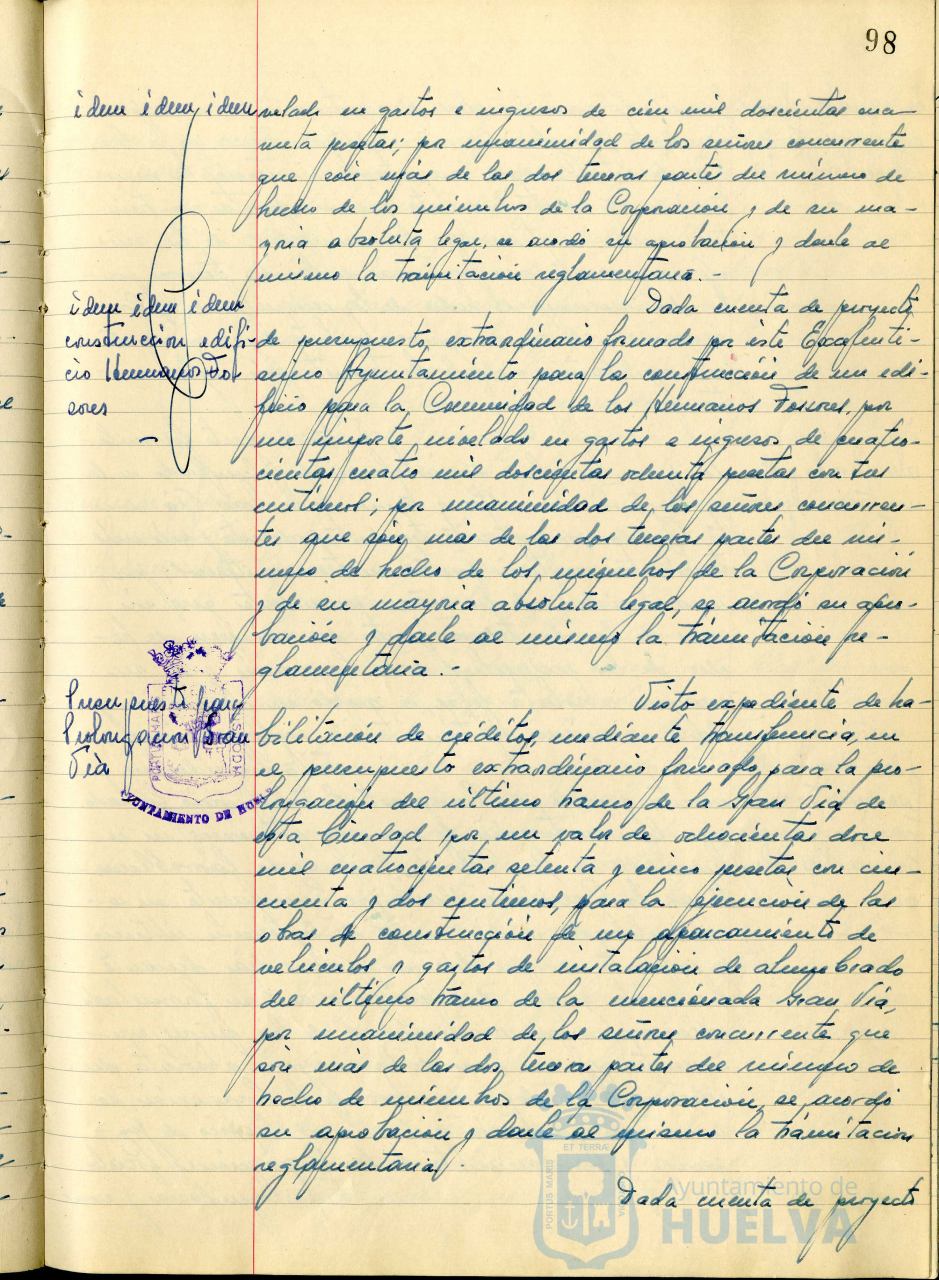 98
idem idem idem
nelado en gastos e ingresos de cien mil doscientas cua-
renta pesetas; por unanimidad de los señores concurrente
que són más de las dos terceras partes del número de
hecho de los miembros de la Corporación y de su ma-
yoria absoluta legal, se acordó su aprobación y darle al
mismo la tramitación reglamentaria.-
idem idem idem
construcción edifi-
cio Hermanos Fos
sores
Dada cuenta de proyecto
de presupuesto extraordinario formado por este Excelenti-
simo Ayuntamiento para la construcción de un edi-
ficio para la Comunidad de los Hermanos Fossores, por
un importe nivelado en gastos e ingresos de cuatro-
cientas cuatro mil doscientas ochenta pesetas con tres
centimos; por unanimidad de los señores concurren-
tes que són más de las dos terceras partes del nú-
mero de hecho de los miembros de la Corporación
y de su mayoria absoluta legal, se acordó su apro-
bación y darle al mismo la trámitación re-
glamentaria.-
Presupuesto
Prolongación Gran
Via
PORTUS MARIS
CUSTODIA
AYUNTAMIENTO DE HUELVA
Visto expediente de ha-
bilitación de créditos, mediante transferencia, en
el presupuesto extraordinario formado para la pro-
longación del último tramo de la Gran Via de
esta Ciudad por un valor de ochocientas doce
mil cuatrocientas setenta y cinco pesetas con cin-
cuenta y dos centimos, para la ejecución de las
obras de construcción de un aparcamiento de
vehiculos y gastos de instalación de alumbrado
del último tramo de la mencionada Gran Via,
por unanimidad de los señores concurrente que
són más de las dos terceras partes del número de
hecho de miembros de la Corporación, se acordó
su aprobación y darle al mismo la trámitación
reglamentaria.-
Dada cuenta de proyecto
PORTUS MARIS
ET TERRAE
CUSTODIA
Ayuntamiento de
HUELVA